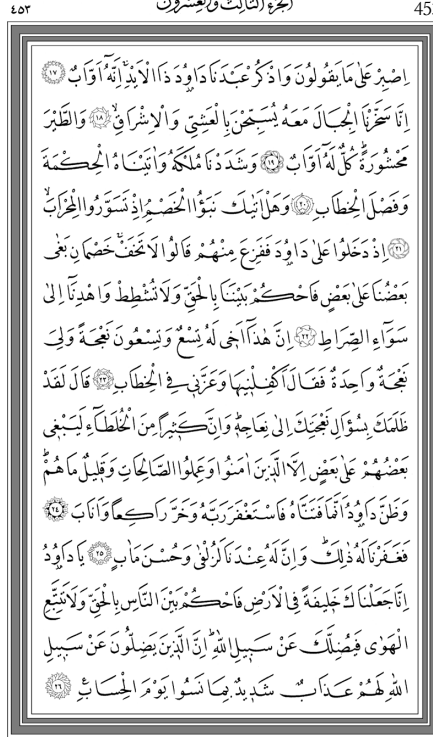 ٤٥٣ الجزء الثالث والعشرون 45
اِصْبِرْ عَلٰى مَا يَقُولُونَ وَاذْكُرْ عَبْدَنَا دَاوُ۫دَ ذَا الْاَيْدِۚ اِنَّهُٓ اَوَّابٌ ﴿١٧﴾
اِنَّا سَخَّرْنَا الْجِبَالَ مَعَهُ يُسَبِّحْنَ بِالْعَشِيِّ وَالْاِشْرَاقِۙ ﴿١٨﴾ وَالطَّيْرَ
مَحْشُورَةًۜ كُلٌّ لَهُٓ اَوَّابٌ ﴿١٩﴾ وَشَدَدْنَا مُلْكَهُ وَاٰتَيْنَاهُ الْحِكْمَةَ
وَفَصْلَ الْخِطَابِ ﴿٢٠﴾ وَهَلْ اَتٰيكَ نَبَؤُا الْخَصْمِۢ اِذْ تَسَوَّرُوا الْمِحْرَابَۙ
﴿٢١﴾ اِذْ دَخَلُوا عَلٰى دَاوُ۫دَ فَفَزِعَ مِنْهُمْ قَالُوا لَا تَخَفْۚ خَصْمَانِ بَغٰى
بَعْضُنَا عَلٰى بَعْضٍ فَاحْكُمْ بَيْنَنَا بِالْحَقِّ وَلَا تُشْطِطْ وَاهْدِنَٓا اِلٰى
سَوَٓاءِ الصِّرَاطِ ﴿٢٢﴾ اِنَّ هٰذَٓا اَخ۪ي لَهُ تِسْعٌ وَتِسْعُونَ نَعْجَةً وَلِيَ
نَعْجَةٌ وَاحِدَةٌ فَقَالَ اَكْفِلْن۪يهَا وَعَزَّن۪ي فِي الْخِطَابِ ﴿٢٣﴾ قَالَ لَقَدْ
ظَلَمَكَ بِسُؤَالِ نَعْجَتِكَ اِلٰى نِعَاجِه۪ۜ وَاِنَّ كَث۪يرًا مِنَ الْخُلَطَٓاءِ لَيَبْغ۪ي
بَعْضُهُمْ عَلٰى بَعْضٍ اِلَّا الَّذ۪ينَ اٰمَنُوا وَعَمِلُوا الصَّالِحَاتِ وَقَل۪يلٌ مَا هُمْۜ
وَظَنَّ دَاوُ۫دُ اَنَّمَا فَتَنَّاهُ فَاسْتَغْفَرَ رَبَّهُ وَخَرَّ رَاكِعًا وَاَنَابَ ﴿٢٤﴾
فَغَفَرْنَا لَهُ ذٰلِكَۜ وَاِنَّ لَهُ عِنْدَنَا لَزُلْفٰى وَحُسْنَ مَاٰبٍ ﴿٢٥﴾ يَا دَاوُ۫دُ
اِنَّا جَعَلْنَاكَ خَل۪يفَةً فِي الْاَرْضِ فَاحْكُمْ بَيْنَ النَّاسِ بِالْحَقِّ وَلَا تَتَّبِعِ
الْهَوٰى فَيُضِلَّكَ عَنْ سَب۪يلِ اللّٰهِۜ اِنَّ الَّذ۪ينَ يَضِلُّونَ عَنْ سَب۪يلِ
اللّٰهِ لَهُمْ عَذَابٌ شَد۪يدٌ بِمَا نَسُوا يَوْمَ الْحِسَابِ۟ ﴿٢٦﴾